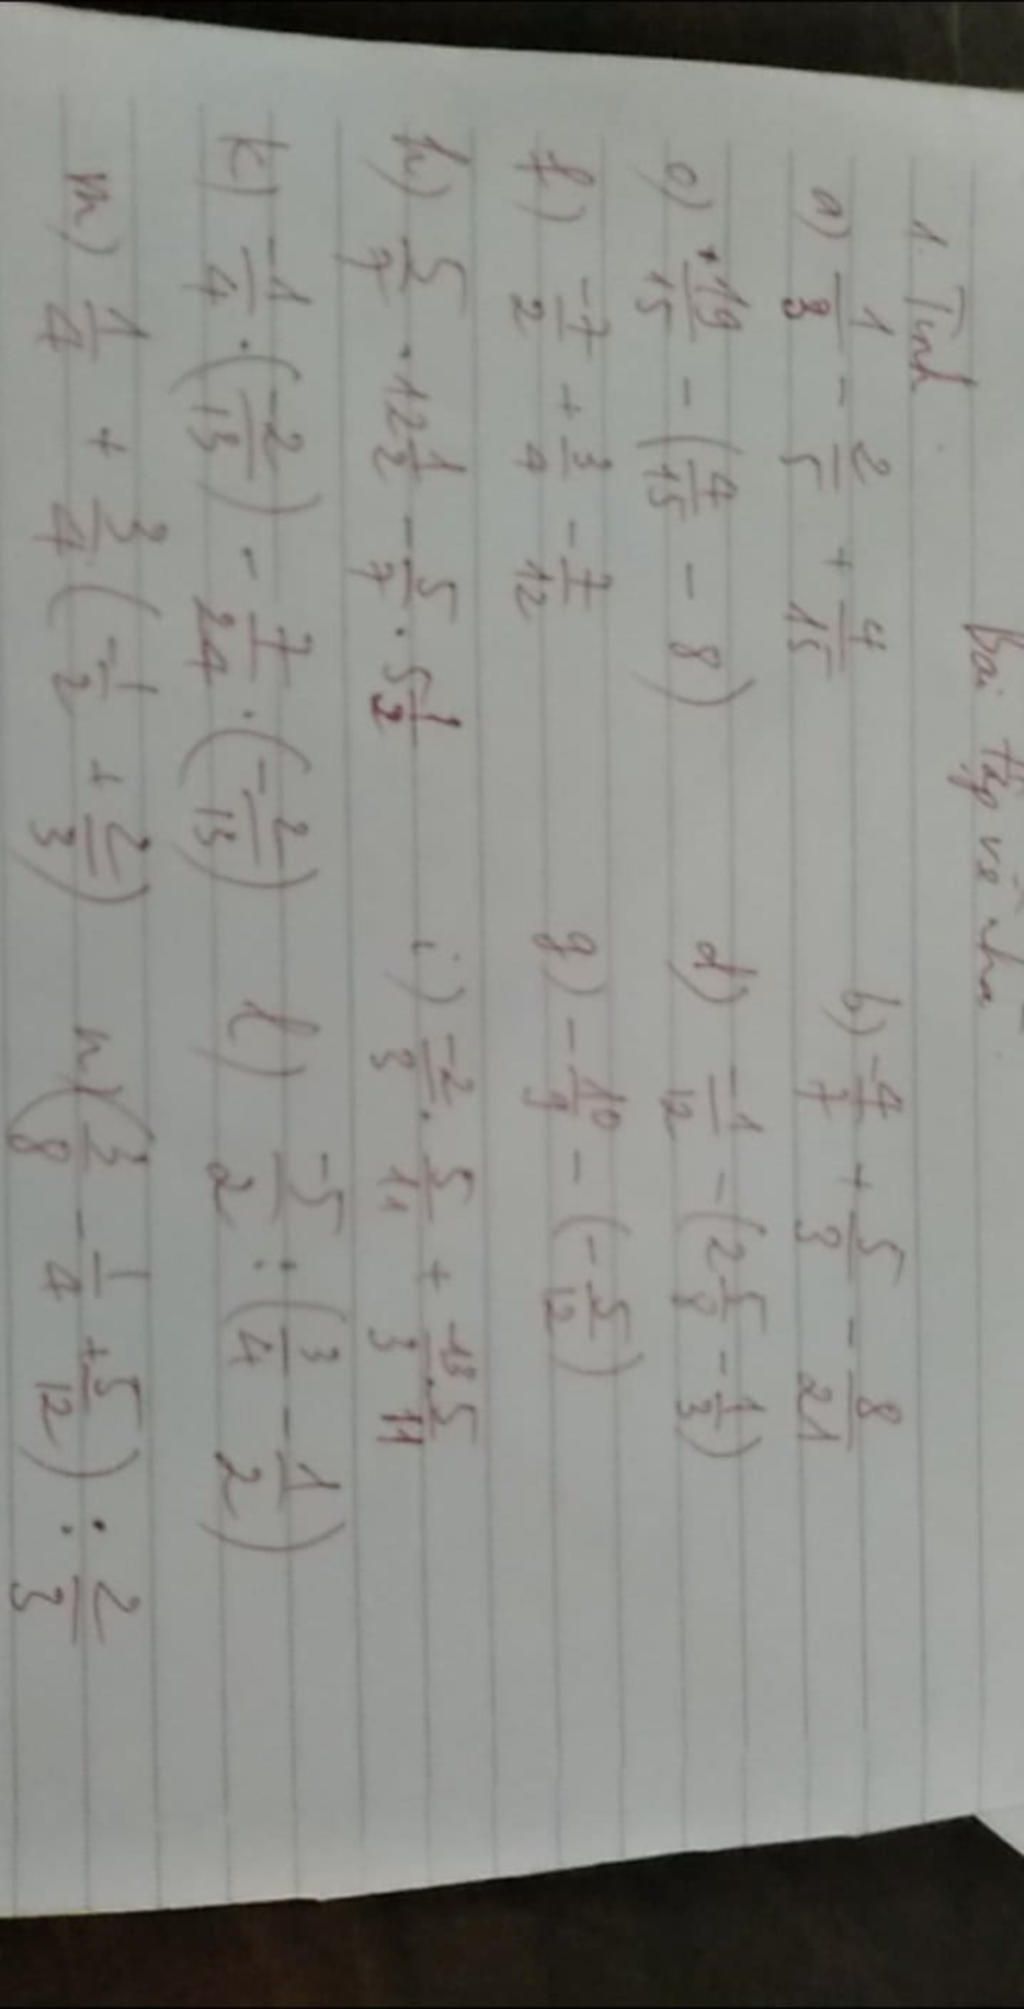 Bài tập về nhà
1. Tính
a) 1/3 - 2/5 + 4/15 b) -4/7 + 5/3 - 8/21
c) 19/15 - (4/15 - 8) d) -1/12 - (2 5/8 - 1/3)
f) -7/2 + 3/4 - 7/12 g) -10/9 - (-5/12)
h) 5/7 . 12 1/2 - 5/7 . 5 1/2 i) -2/3 . 5/11 + -13/3 . 5/11
k) -1/4 . (-2/13) - 7/24 . (-2/13) l) -5/2 : (3/4 - 1/2)
m) 1/4 + 3/4 (-1/2 + 2/3) n) (3/8 - 1/4 + 5/12) : 2/3